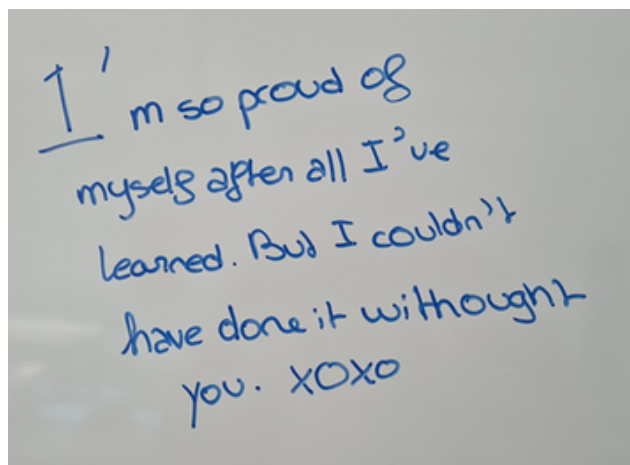 I'm so proud of
myself after all I've
learned. But I couldn't
have done it withought
you. xoxo